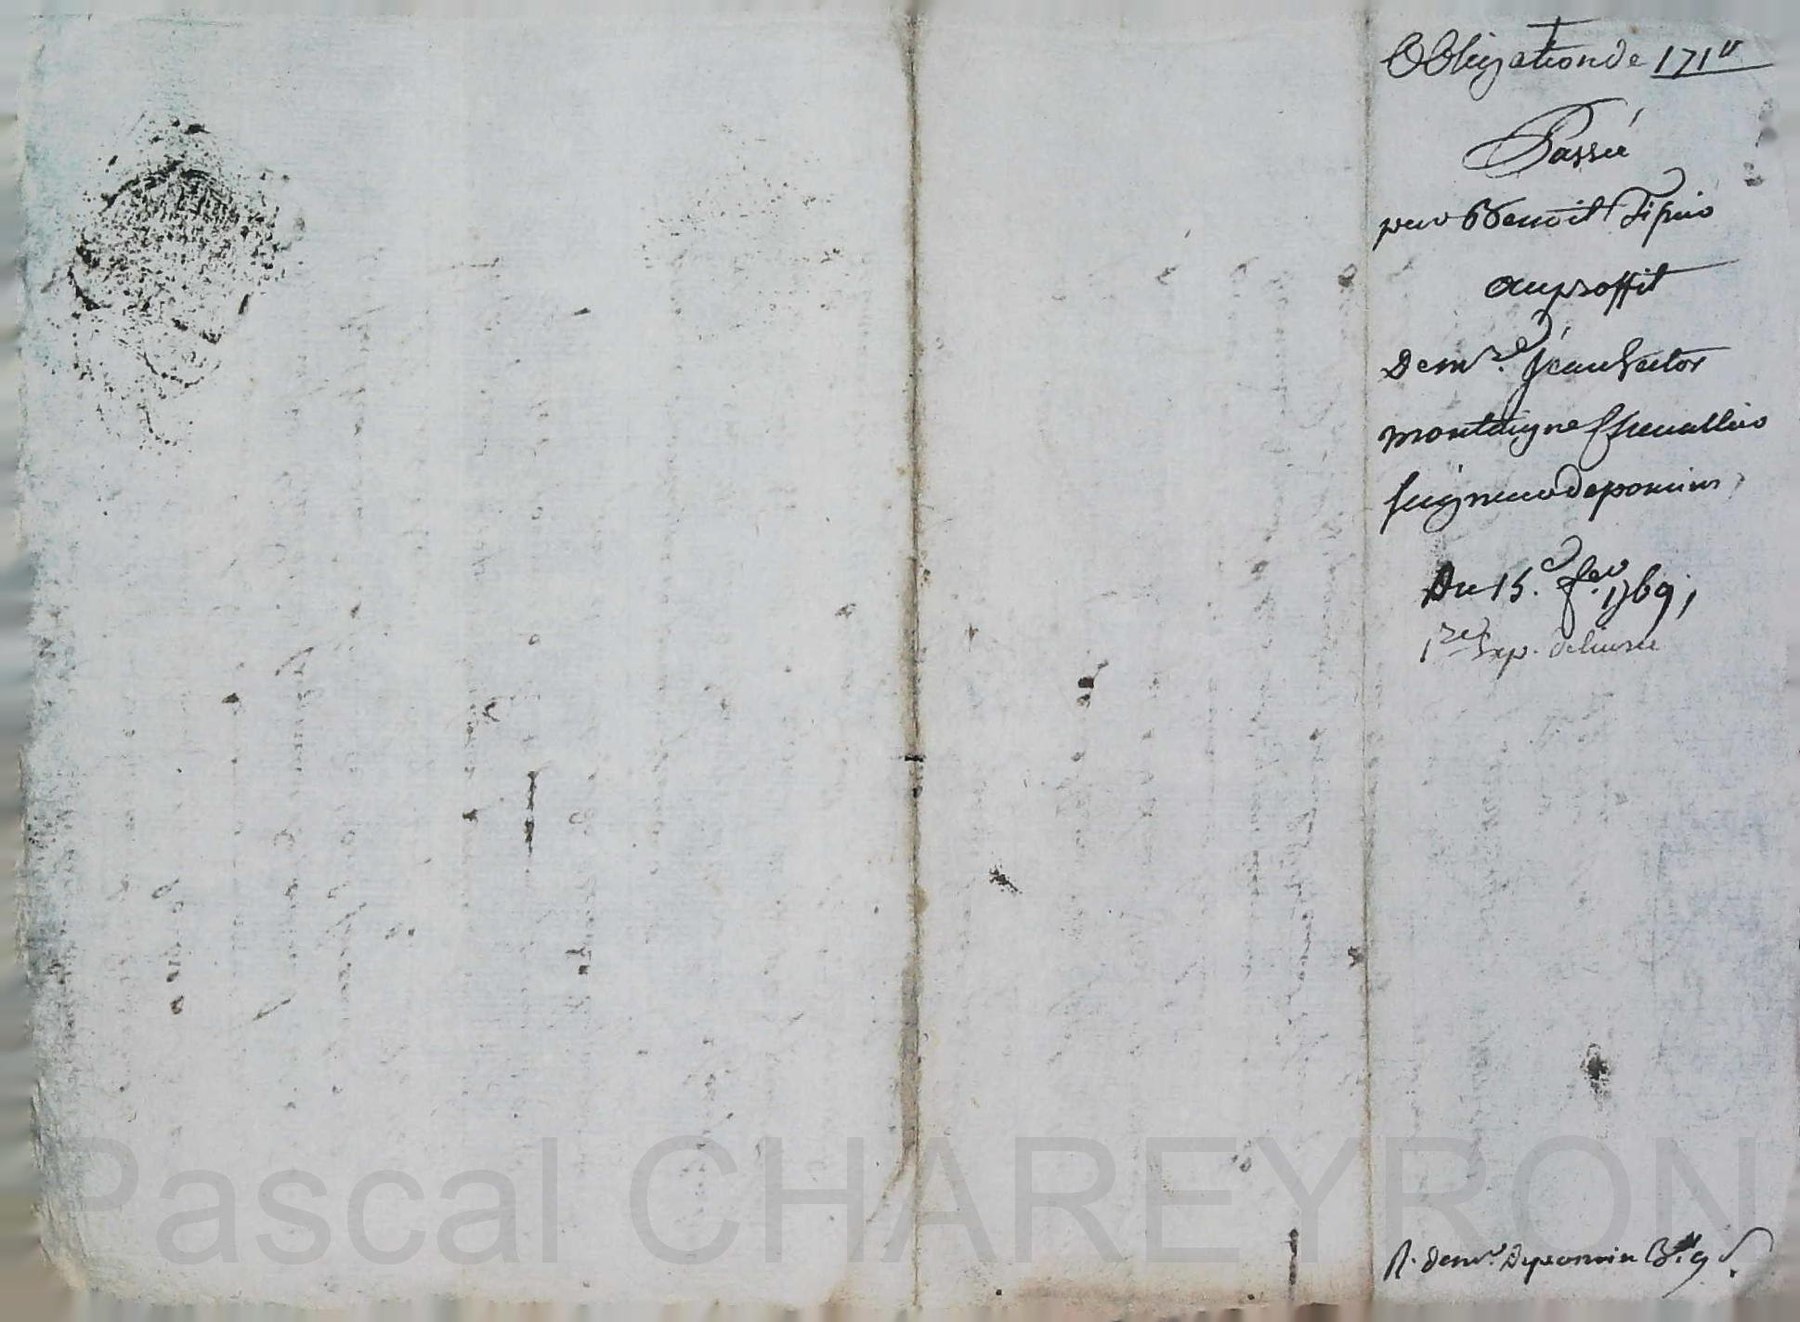 Obligation de 171ˡᵗ
Passée
par Benoit
au proffit
De mʳᵉ. jean hector
montaigne Chevallier
seigneur de pomins
Du 15.ᵉ fᵉʳ 1769,
1ʳᵉ Exp. delivrée
R. de mʳ. De pomin 3ˡᵗ 9 s.
Pascal CHAREYRON